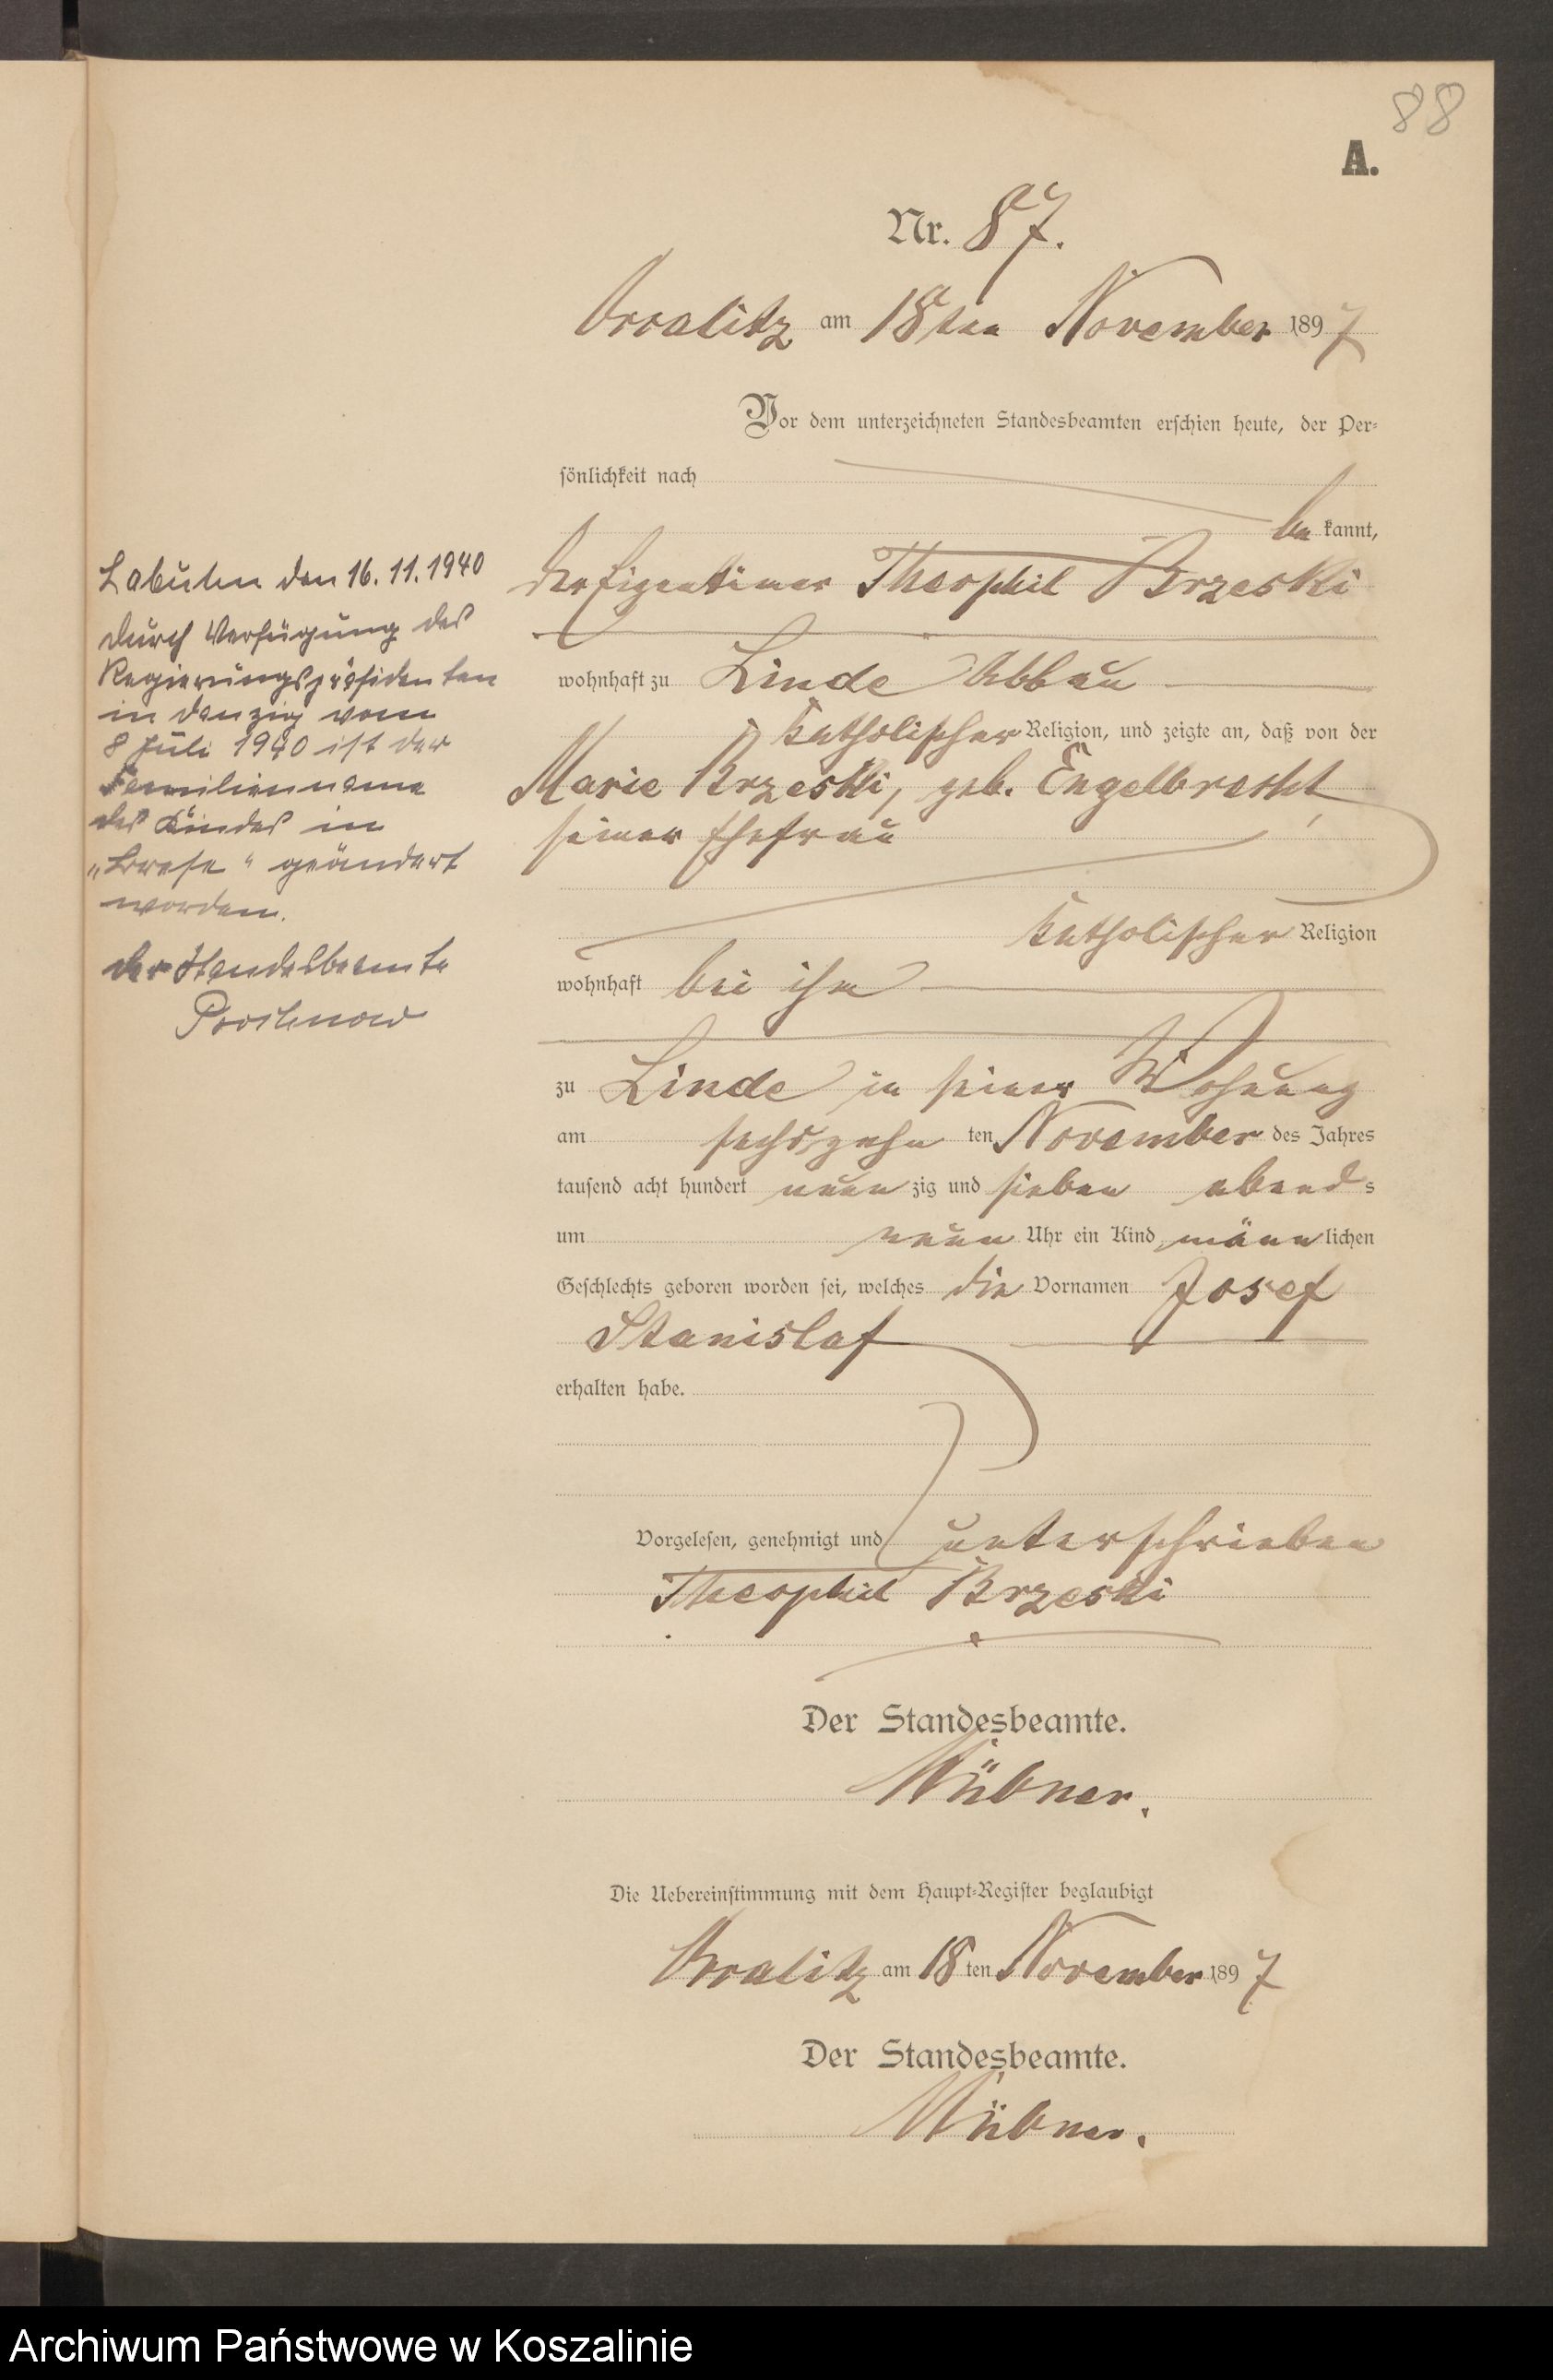 88
A.
Nr. 87.
am 18ten November 1897
Vor dem unterzeichneten Standesbeamten erschien heute, der Per-
sönlichkeit nach
be kannt,
der Eigentümer Theophil Brzeski
wohnhaft zu Linde Abbau
katholischer Religion, und zeigte an, daß von der
Marie Brzeski, geb. Engelbrecht,
seiner Ehefrau
katholischer Religion
wohnhaft bei ihm
zu Linde in seiner Wohnung
am sechszehn ten November des Jahres
tausend acht hundert neun zig und sieben abend s
um neun Uhr ein Kind männ lichen
Geschlechts geboren worden sei, welches die Vornamen Josef
Stanislaf
erhalten habe.
Vorgelesen, genehmigt und unterschrieben
Theophil Brzeski
Der Standesbeamte.
Die Uebereinstimmung mit dem Haupt-Register beglaubigt
am 18 ten November 1897
Der Standesbeamte.
Labuhn den 16.11.1940
Durch Verfügung des
Regierungspräsidenten
in Danzig vom
8 Juli 1940 ist der
Familienname
des Kindes in
„Brese“ geändert
worden.
Der Standesbeamte
Prochnow
Archiwum Państwowe w Koszalinie